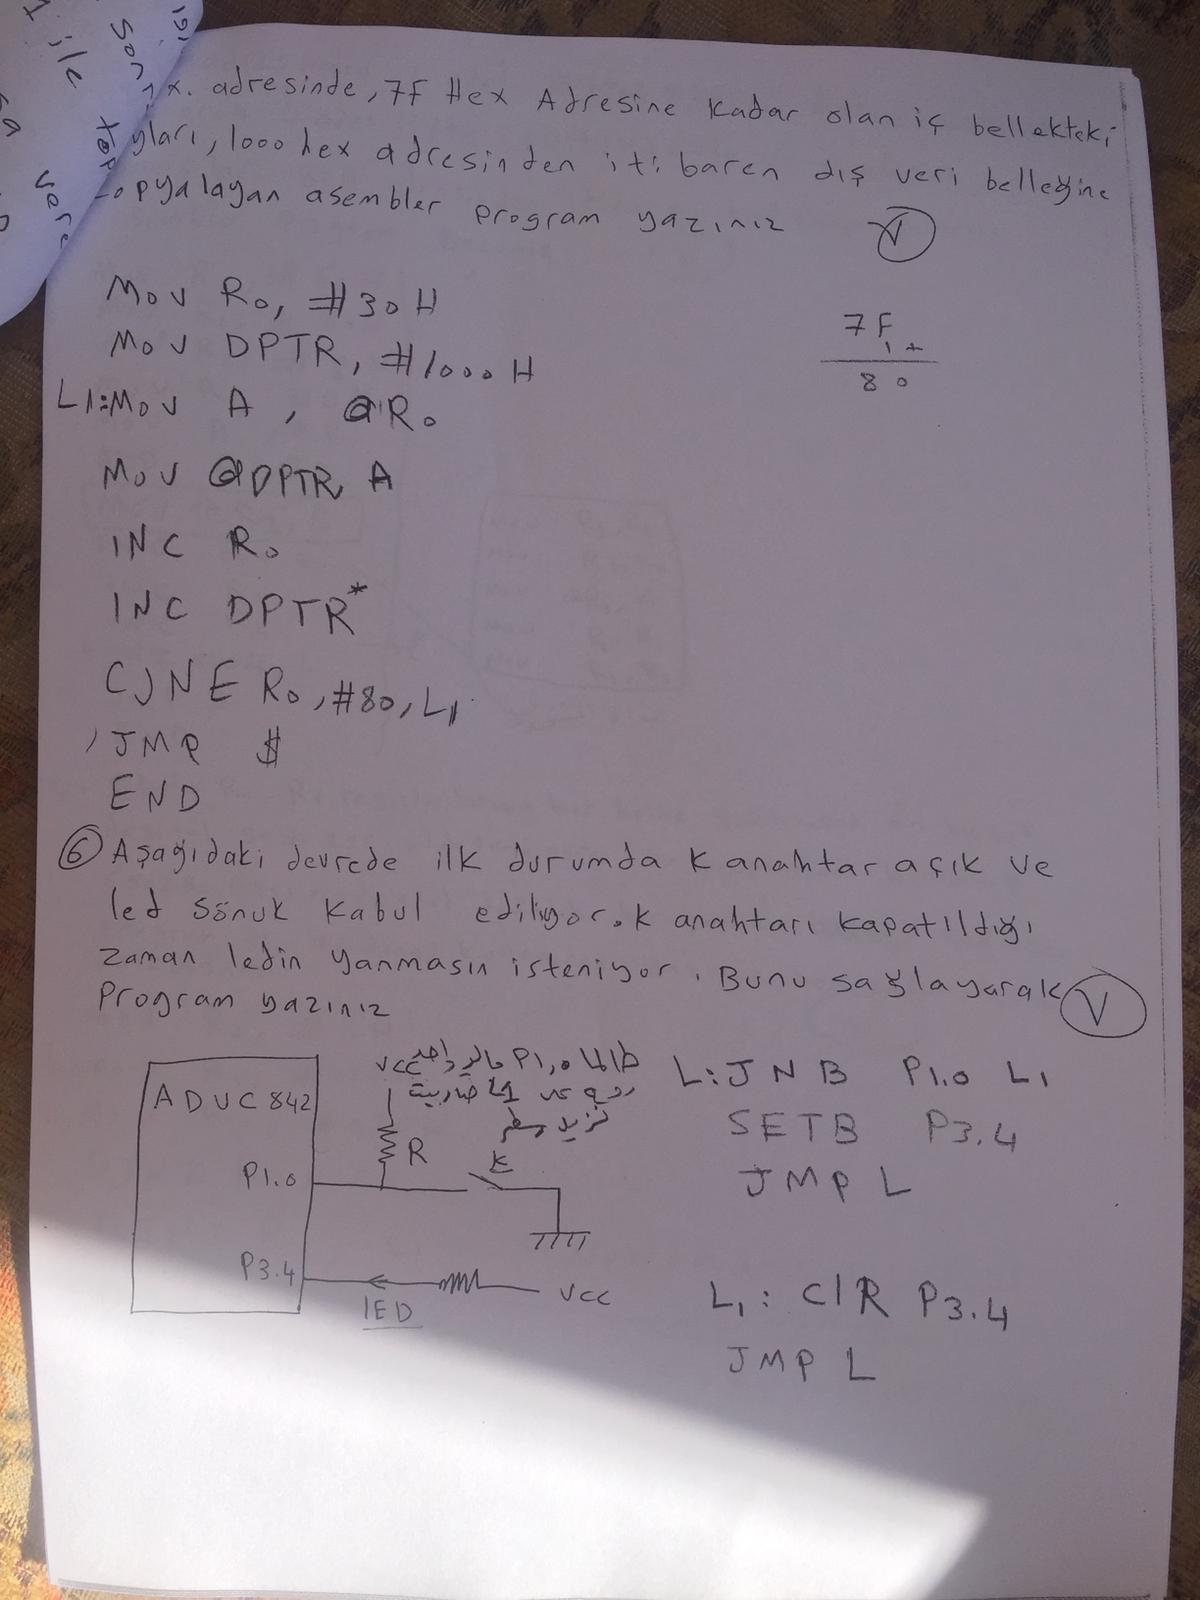 x. adresinde, 7F Hex Adresine kadar olan iç bellekteki
yları, 1000 hex adresinden itibaren dış veri belleğine
opyalayan asembler program yazınız V
MOV R0, #30H
MOV DPTR, #1000H
L1: MOV A, @R0
MOV @DPTR, A
INC R0
INC DPTR*
CJNE R0, #80, L1
JMP $
END
7F
1 +
80
6 Aşağıdaki devrede ilk durumda K anahtar açık ve
led sönuk kabul ediliyor. K anahtarı kapatıldığı
zaman ledin yanmasın isteniyor. Bunu sağlayarak
Program yazınız V
ADUC 842
P1.0
P3.4
VCC
R
K
LED
VCC
طالما P1,0
L: JNB P1.0 L1
SETB P3.4
JMP L
L1: ClR P3.4
JMP L
ile